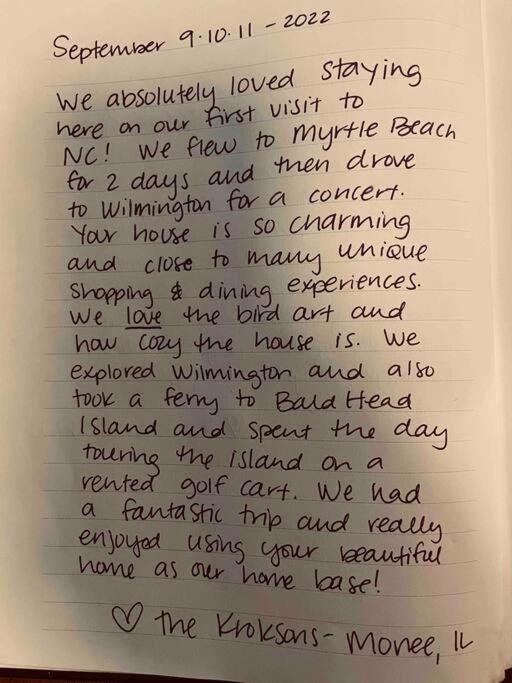 September 9.10.11 - 2022
We absolutely loved staying
here on our first visit to
NC! We flew to Myrtle Beach
for 2 days and then drove
to Wilmington for a concert.
Your house is so charming
and close to many unique
shopping & dining experiences.
We love the bird art and
how cozy the house is. We
explored Wilmington and also
took a ferry to Bald Head
Island and spent the day
touring the island on a
rented golf cart. We had
a fantastic trip and really
enjoyed using your beautiful
home as our home base!
♡ The Kroksons - Monee, IL